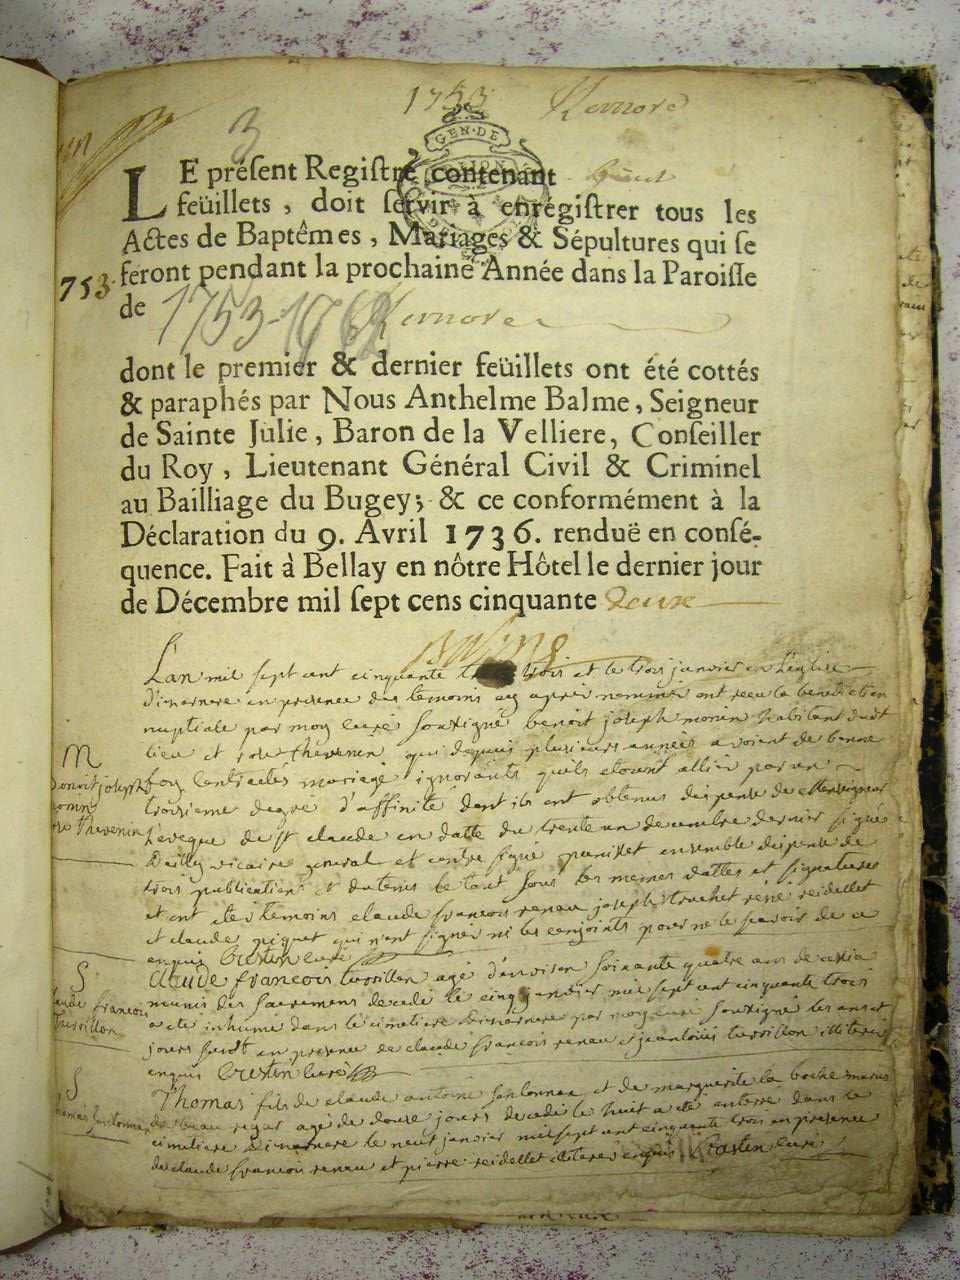 1753
3
GEN·DE
LE préſent Regiſtre contenant huit
feüillets, doit ſervir à enrégiſtrer tous les
Actes de Baptêmes, Mariages & Sépultures qui ſe
feront pendant la prochaine Année dans la Paroiſſe
753.
de
1753-1762
dont le premier & dernier feüillets ont été cottés
& paraphés par Nous Anthelme Balme, Seigneur
de Sainte Julie, Baron de la Velliere, Conſeiller
du Roy, Lieutenant Général Civil & Criminel
au Bailliage du Bugey; & ce conformément à la
Déclaration du 9. Avril 1736. renduë en conſé-
quence. Fait à Bellay en nôtre Hôtel le dernier jour
de Décembre mil ſept cens cinquante deux
L'an mil sept cent cinquante trois et le trois janvier en l'église
en presence des temoins cy apres nommés ont receu la benediction
nuptiale par moy curé soussigné benoit joseph monin habitant dudit
lieu et thevenin qui depuis plusieurs années avoient de bonne
foy contractés mariage ignorants qu'ils etoient alliés par un
troisieme degré d'affinité dont ils ont obtenus dispense de Monseigneur
l'eveque de st claude en datte du trente un decembre dernier signé
vicaire general et contre signé ensemble dispense de
trois publications et du tems le tout sous les memes dattes et signatures
et ont etés temoins claude francois renau joseph truchet rené reidellet
et claude piquet qui n'ont signer ni les conjoints pour ne le scavoir de ce
enquis curé
M
benoit joseph
monin
thevenin
Claude francois turillon agé d'environ soixante quatre ans
munis des sacremens decedé le cinq janvier mil sept cent cinquante trois
a eté inhumé dans le cimetiere par moy curé soussigné les an et
jours susdt en presence de claude francois renau et jean louis turillon illiterés
enquis curé
S
claude francois
turillon
Thomas fils de claude antoine et de marguerite la
de beau regar agé de douze jours decedé le huit a eté enterré dans le
cimetiere le neuf janvier mil sept cent cinquante trois en presence
de claude francois renau et pierre reidellet illiterés enquis curé
S
thomas